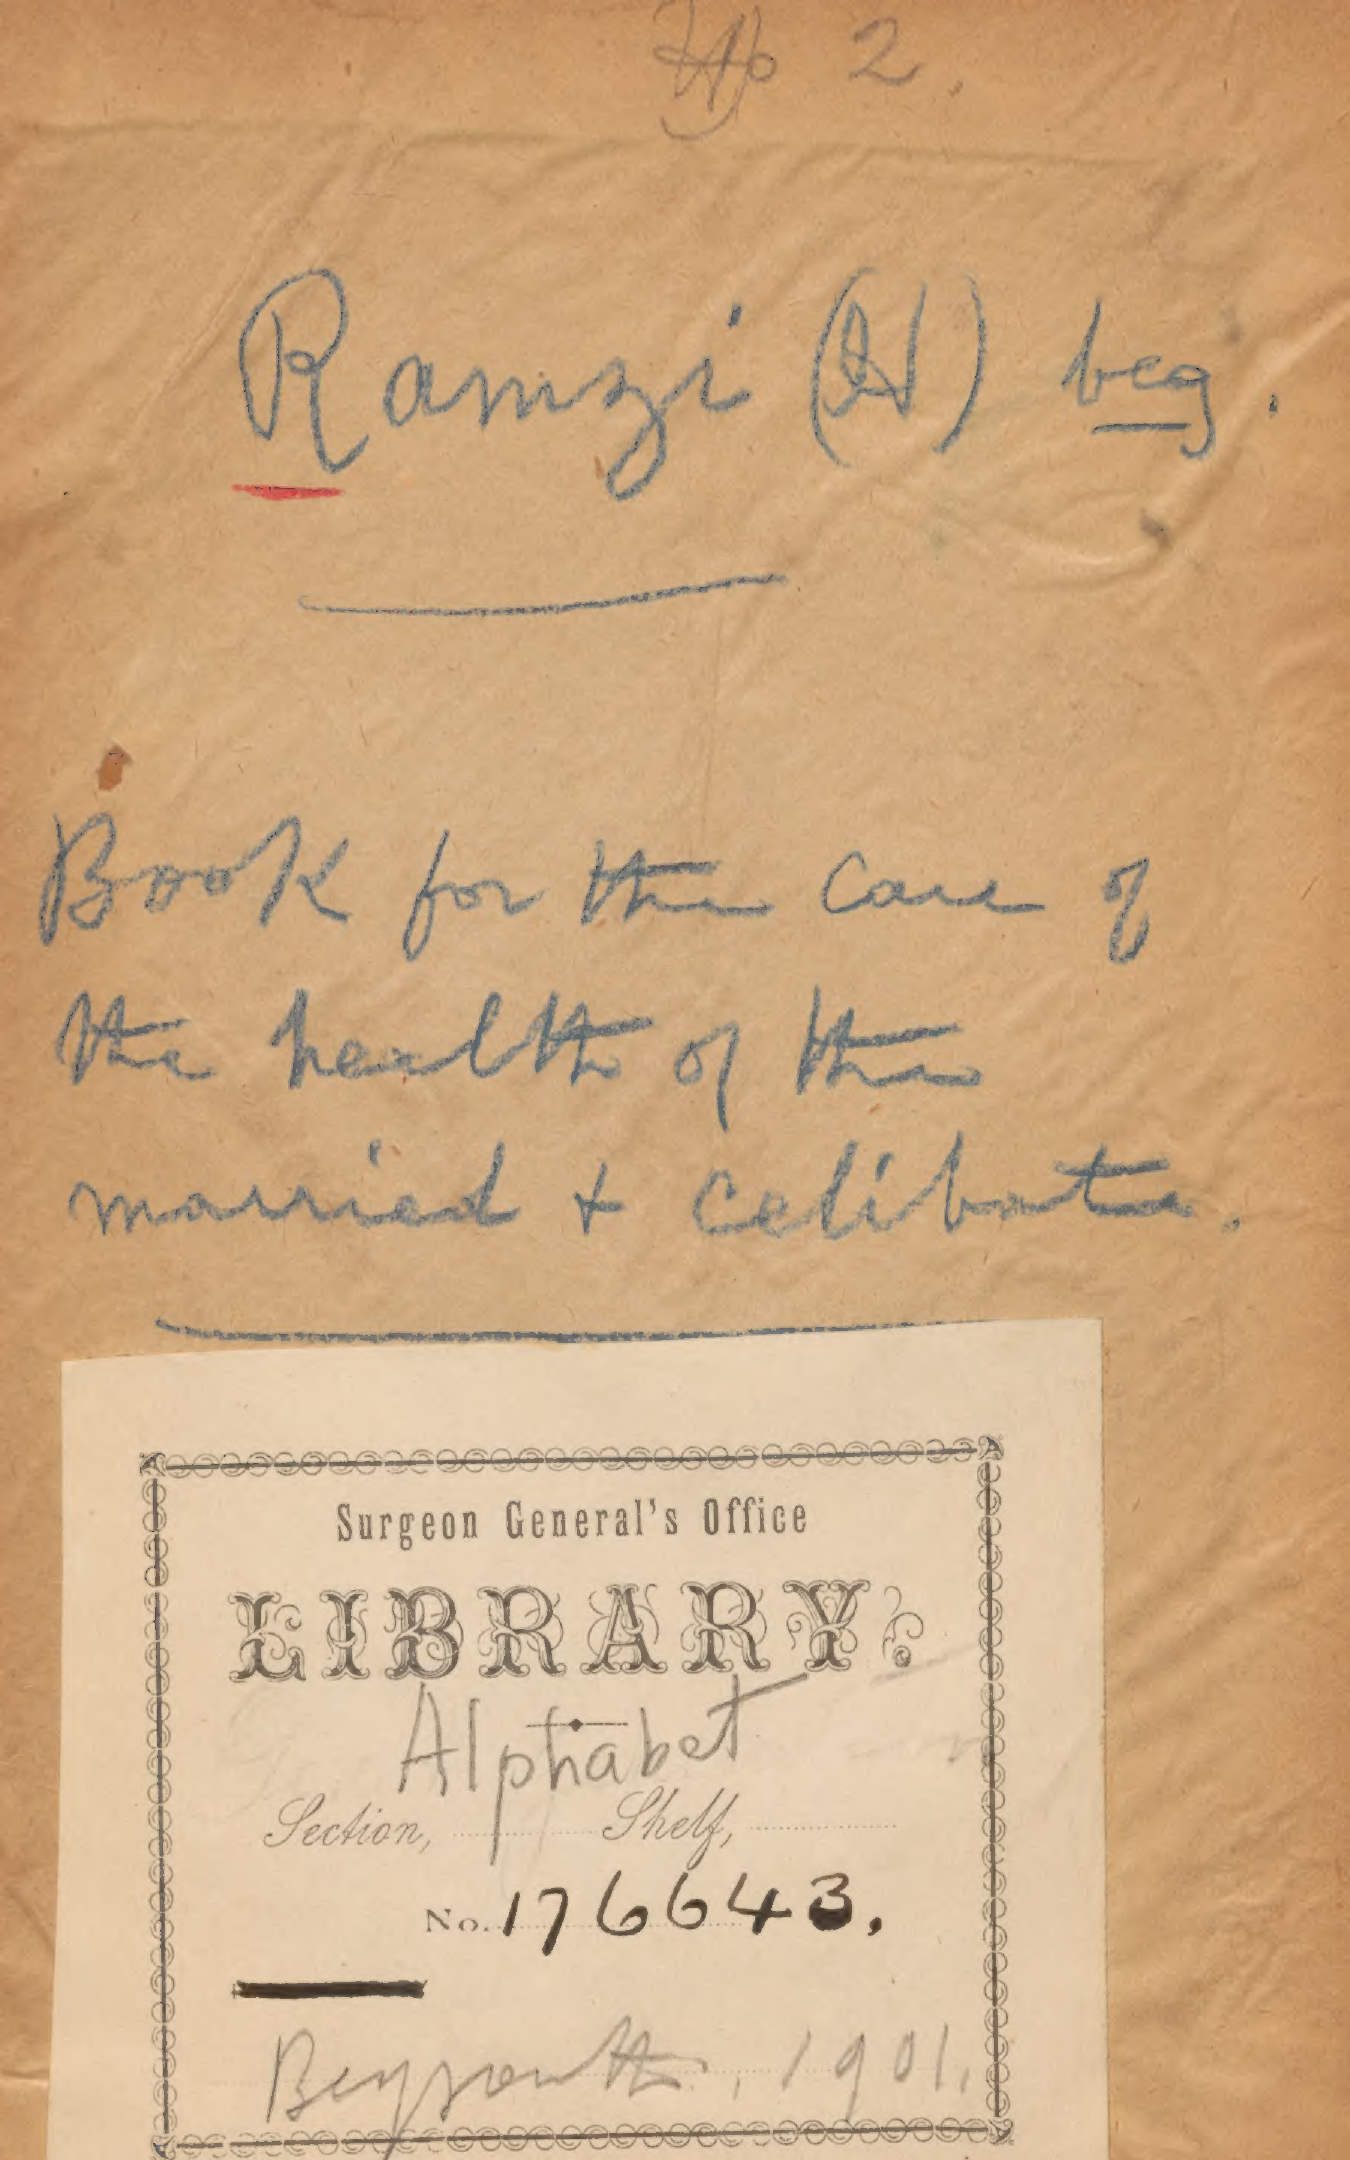 No 2.
Ramzi (H) beg.
Book for the care of
the health of the
married + celibate.
Surgeon General's Office
LIBRARY.
Alphabet
Section, Shelf,
No. 176643.
Beyrouth, 1901.